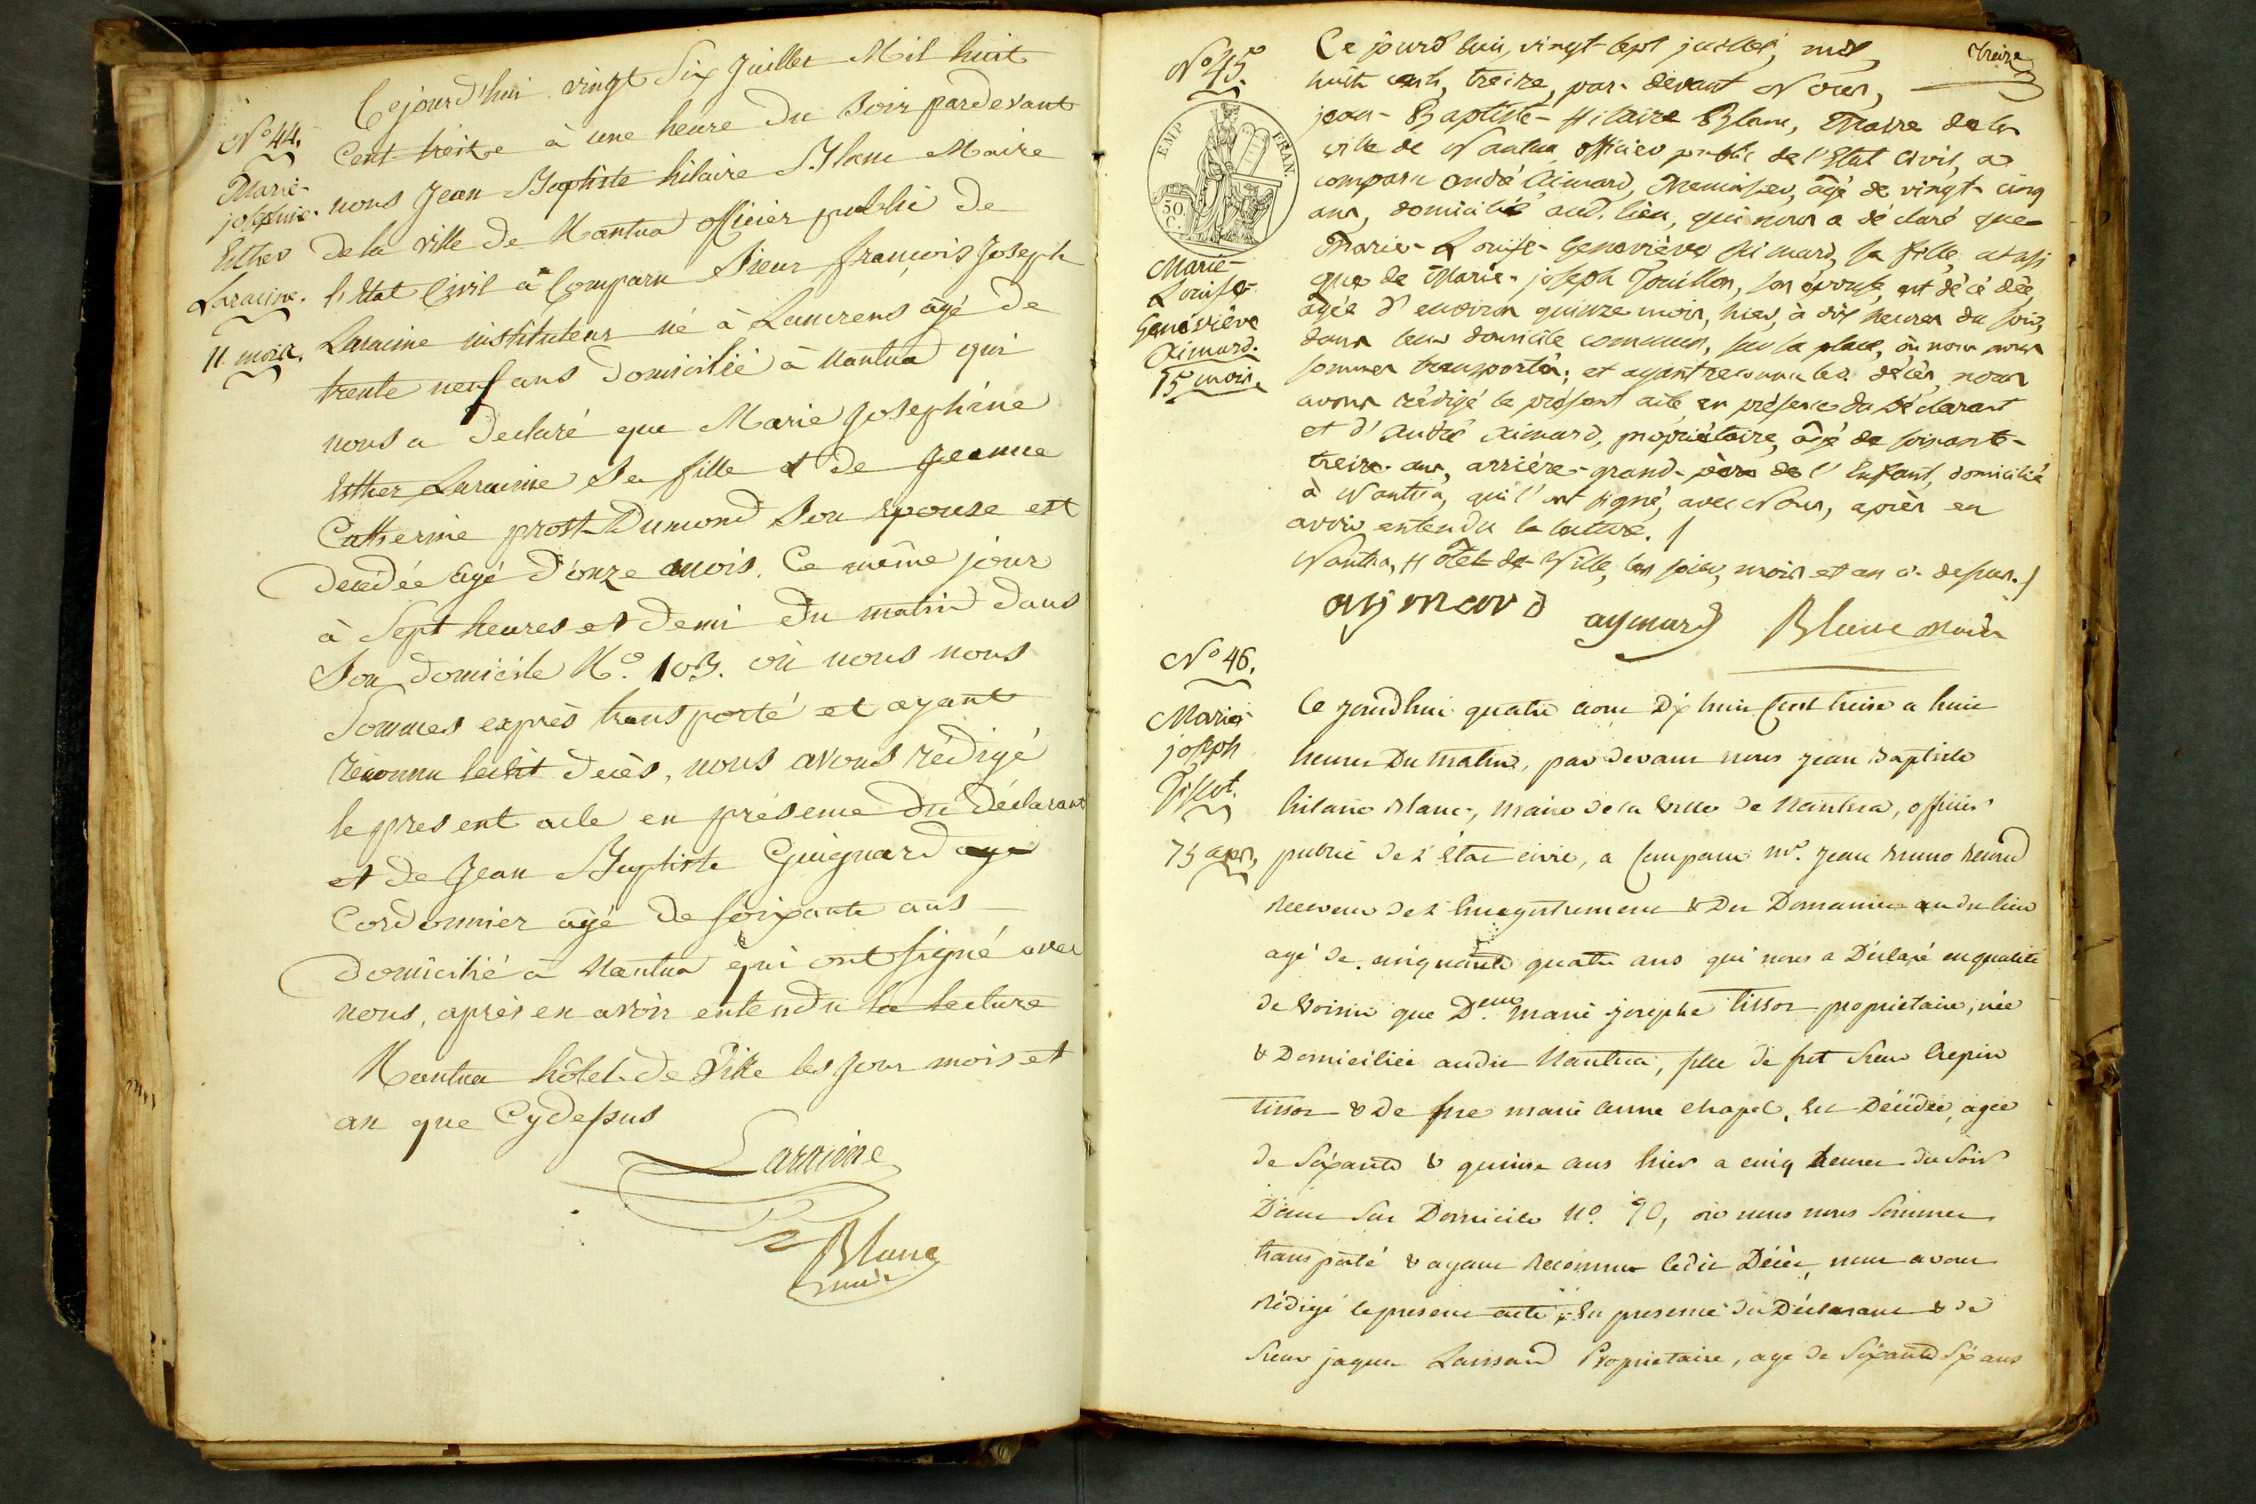 N° 44.
Marie-
josephine-
Esther
Laracine.
11 mois.
Cejourd'hui vingt Six Juillet Mil huit
Cent treize à une heure du Soir pardevant
nous Jean Baptiste hilaire Blanc Maire
de la ville de Nantua officier public de
l'Etat Civil a Comparu Sieur françois Joseph
Laracine instituteur né à Lancrens âgé de
trente neuf ans Domicilié à Nantua qui
nous a declaré que Marie Josephine
Esther Laracine Sa fille et de Jeanne
Catherine prost-Dumond Son Epouse est
decédée âgé d'onze mois. Ce même jour
à Sept heures et demi du matin dans
Son domicile N.° 103. où nous nous
Sommes exprès transporté et ayant
reconnu ledit decès, nous avons rédigé
le present acte en présence du Déclarant
et de Jean Baptiste Guignard
Cordonnier âgé de soixante ans
domicilié à Nantua qui ont signé avec
nous, après en avoir entendu la lecture
Nantua hôtel de Ville les jour mois et
an que Cydessus
Laracine
Blanc
maire
treize
N° 45.
EMP. FRAN.
50 C.
Marie-
Louise-
Geneviève
Aimard.
15 mois.
Ce jourd'hui, vingt-sept juillet, mil,
huit cent, treize, par-devant Nous,
jean-Baptiste-Hilaire Blanc, Maire de la
ville de Nantua officier public de l'Etat Civil, a
comparu andré Aimard, Menuisier, âgé de vingt-cinq
ans, domicilié aud. lieu, qui nous a déclaré que
Marie-Louise-Geneviève Aimard, sa fille, ainsi
que de Marie-joseph Jouillon, son épouse, est décédée,
agée d'environ quinze mois, hier, à dix heures du soir,
dans leur domicile commun, sur la place, où nous nous
sommes transportés; et ayant reconnu led. décès, nous
avons rédigé le présent acte, en présence du Déclarant
et d'André Aimard, propriétaire, âgé de soixante-
treize ans, arrière-grand-père de l'Enfant, domicilié
à Nantua, qui l'ont signé, avec Nous, après en
avoir entendu la lecture. /
Nantua, Hôtel-de-Ville, les jour, mois et an ci-dessus. /
aymard aymard Blanc maire
N° 46.
Marie-
joseph
Tissot.
75 ans,
Ce jourdhui quatre aout Dix huit Cent treize a huit
heures Du Matin, par devant nous jean Baptiste
hilaire Blanc, Maire de la Ville de Nantua, officier
public de l'état civil, a Comparu Mr. jean Bruno
Receveur de l'Enregistrement & Du Domaine audit lieu
agé de cinquante quatre ans qui nous a Déclaré en qualité
de Voisin que Delle Marie josephe Tissot propriétaire, née
& Domiciliée audit Nantua, fille de fut Sieur Crepin
Tissot & De fue marie anne chapel, Est Décédée, agée
de Soixante & quinze ans hier a cinq heures du Soir
Dans Son Domicile N° 90, où nous nous Sommes
transporté & ayant Reconnu ledit Décès, nous avons
Rédigé le present acte En presence du Déclarant & de
Sieur jaques Proprietaire, agé de Soixante Six ans